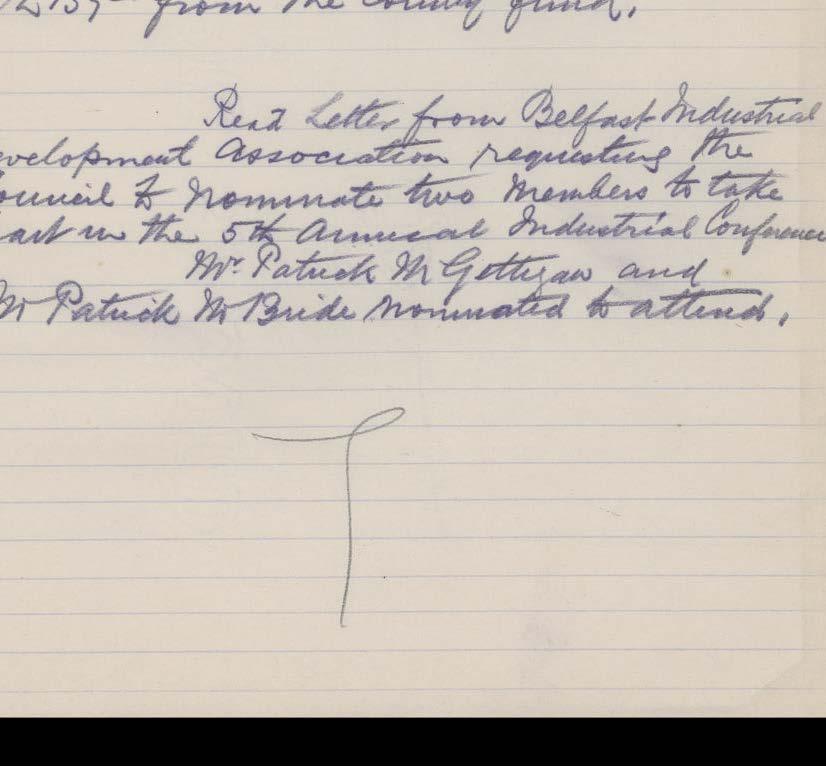 from the County fund.
Read Letter from Belfast Industrial
evelopment Association requesting the
ouncil to nominate two members to take
art in the 5th Annual Industrial Conference
Mr Patrick McGettigan and
Mr Patrick McBride nominated to attend.